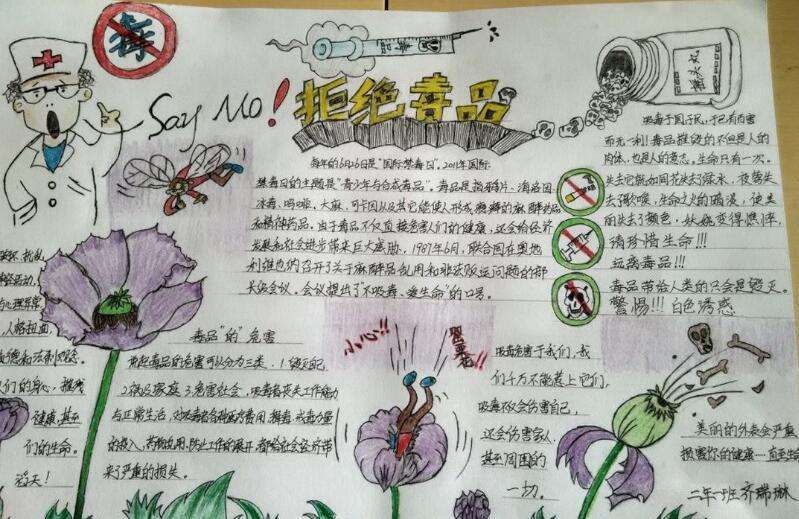 毒
Say No!
拒绝毒品
毒品
每年的6月26日是"国际禁毒日"。2011年国际
禁毒日的主题是"青少年与合成毒品"。毒品是指鸦片、海洛因、
冰毒、吗啡、大麻、可卡因以及其它能使人形成瘾癖的麻醉药品
和精神药品。由于毒品不仅直接危害人们的健康,还会给经济
发展和社会进步带来巨大威胁。1987年6月,联合国在奥地
利维也纳召开了关于麻醉品乱用和非法贩运问题的部
长级会议,会议提出了"不吸毒、爱生命"的口号。
吸毒于国于民,于己有百害
而无一利!毒品摧残的不但是人的
肉体,也是人的意志。生命只有一次。
失去它就如同花失去了绿水,夜莺失
去了歌喉,生命之火的暗淡,使美
丽失去了颜色,妖娆变得憔悴,
请珍惜生命!!!
远离毒品!!!
毒品带给人类的只会是毁灭。
警惕!!!白色诱惑
毒品"的"危害
所起毒品的危害可以分为三类.1.毁灭自己
2.祸及家庭 3.危害社会,吸毒者丧失工作能力
与正常生活,对吸毒者各种医疗费用,缉毒、戒毒力量
的投入,药物滥用,防止工作的展开,都给社会经济带
来了严重的损失。
人格扭曲
道德和法制观念。
人们的身心,摧残
健康,甚至
们的生命。
小心!!
罂粟花!!
吸毒危害于我们,我
们千万不能惹上它们,
吸毒不仅会伤害自己,
还会伤害家人
甚至周围的
一切。
美丽的外表会严重
损害你的健康一直至生命
二年一班 齐瑞琳